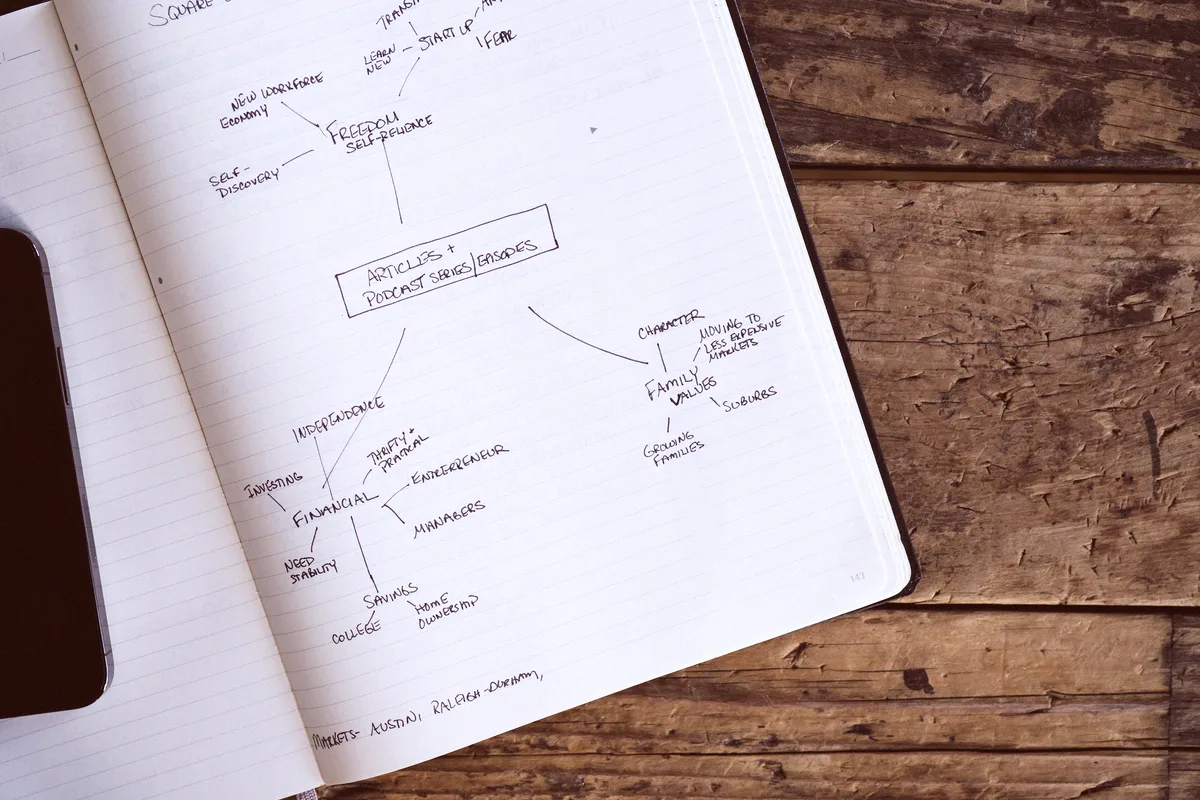 SQUARE
START UP
FEAR
LEARN
NEW
NEW WORKFORCE
ECONOMY
FREEDOM
SELF-RELIENCE
SELF-
DISCOVERY
ARTICLES +
PODCAST SERIES/EPISODES
CHARACTER
MOVING TO
LESS EXPENSIVE
MARKETS
FAMILY
VALUES
SUBURBS
GROWING
FAMILIES
INDEPENDENCE
THRIFTY +
PRACTICAL
INVESTING
ENTREPRENEUR
FINANCIAL
MANAGERS
NEED
STABILITY
SAVINGS
HOME
OWNERSHIP
COLLEGE
143
MARKETS- AUSTIN, RALEIGH-DURHAM,